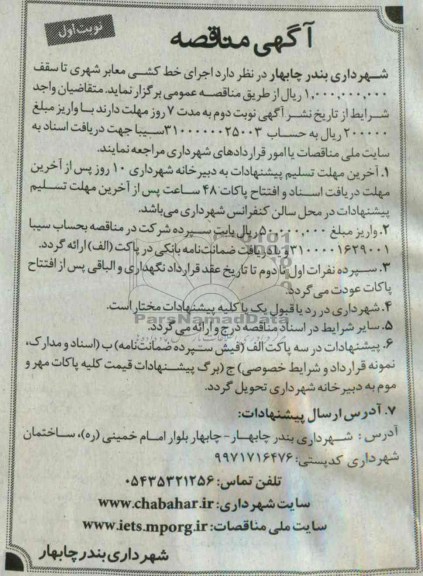 نوبت اول
آگهی مناقصه
شهرداری بندر چابهار در نظر دارد اجرای خط کشی معابر شهری تا سقف
۱,۰۰۰,۰۰۰,۰۰۰ ریال از طریق مناقصه عمومی برگزار نماید. متقاضیان واجد
شرایط از تاریخ نشر آگهی نوبت دوم به مدت ۷ روز مهلت دارند با واریز مبلغ
۲۰۰۰۰۰ ریال به حساب ۳۱۰۰۰۰۰۰۲۵۰۰۳سیبا جهت دریافت اسناد به
سایت ملی مناقصات یا امور قراردادهای شهرداری مراجعه نمایند.
۱. آخرین مهلت تسلیم پیشنهادات به دبیرخانه شهرداری ۱۰ روز پس از آخرین
مهلت دریافت اسناد و افتتاح پاکات ۴۸ ساعت پس از آخرین مهلت تسلیم
پیشنهادات در محل سالن کنفرانس شهرداری می‌باشد.
۲. واریز مبلغ ۵۰,۰۰۰,۰۰۰ ریال بابت سپرده شرکت در مناقصه بحساب سیبا
۳۱۰۰۰۰۱۶۲۹۰۰۱ و یا دریافت ضمانت‌نامه بانکی در پاکت (الف) ارائه گردد.
۳. سپرده نفرات اول تا دوم تا تاریخ عقد قرارداد نگهداری و الباقی پس از افتتاح
پاکات عودت می‌گردد.
۴. شهرداری در رد یا قبول یک یا کلیه پیشنهادات مختار است.
ParsNamadData
۵. سایر شرایط در اسناد مناقصه درج و ارائه می‌گردد.
۶. پیشنهادات در سه پاکت الف (فیش سپرده ضمانت‌نامه) ب (اسناد و مدارک،
نمونه قرارداد و شرایط خصوصی) ج (برگ پیشنهادات قیمت کلیه پاکات مهر و
موم به دبیرخانه شهرداری تحویل گردد.
۷. آدرس ارسال پیشنهادات:
آدرس : شهرداری بندر چابهار-چابهار بلوار امام خمینی (ره)، ساختمان
شهرداری کدپستی: ۹۹۷۱۷۱۶۴۷۶
تلفن تماس: ۰۵۴۳۵۳۲۱۲۵۶
سایت شهرداری: www.chabahar.ir
سایت ملی مناقصات: www.iets.mporg.ir
شهرداری بندر چابهار